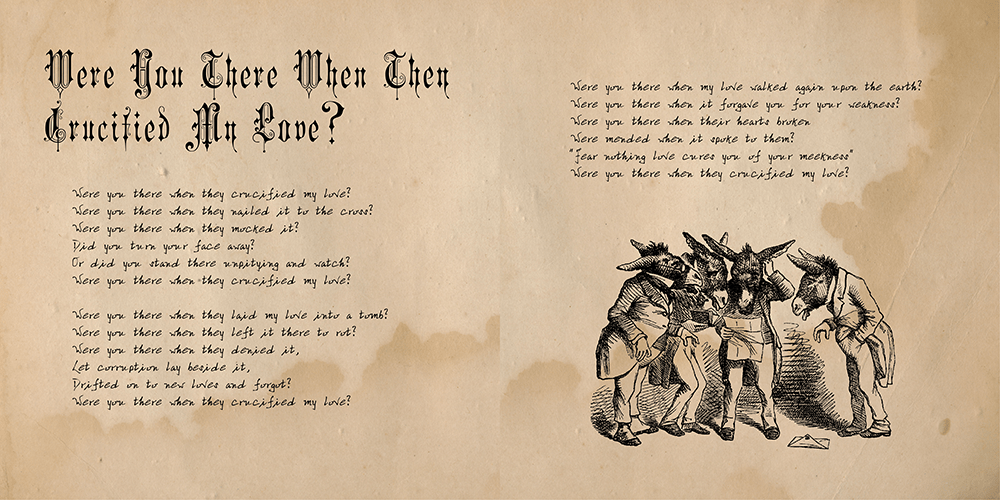 Were You There When Then
Crucified My Love?
Were you there when they crucified my love?
Were you there when they nailed it to the cross?
Were you there when they mocked it?
Did you turn your face away?
Or did you stand there unpitying and watch?
Were you there when they crucified my love?
Were you there when they laid my love into a tomb?
Were you there when they left it there to rot?
Were you there when they denied it,
Let corruption lay beside it,
Drifted on to new loves and forgot?
Were you there when they crucified my love?
Were you there when my love walked again upon the earth?
Were you there when it forgave you for your weakness?
Were you there when their hearts broken
Were mended when it spoke to them?
"Fear nothing love cures you of your meekness"
Were you there when they crucified my love?